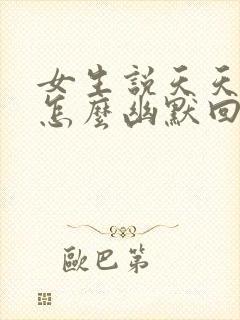 女生說天天
怎麼幽默回
歐巴第